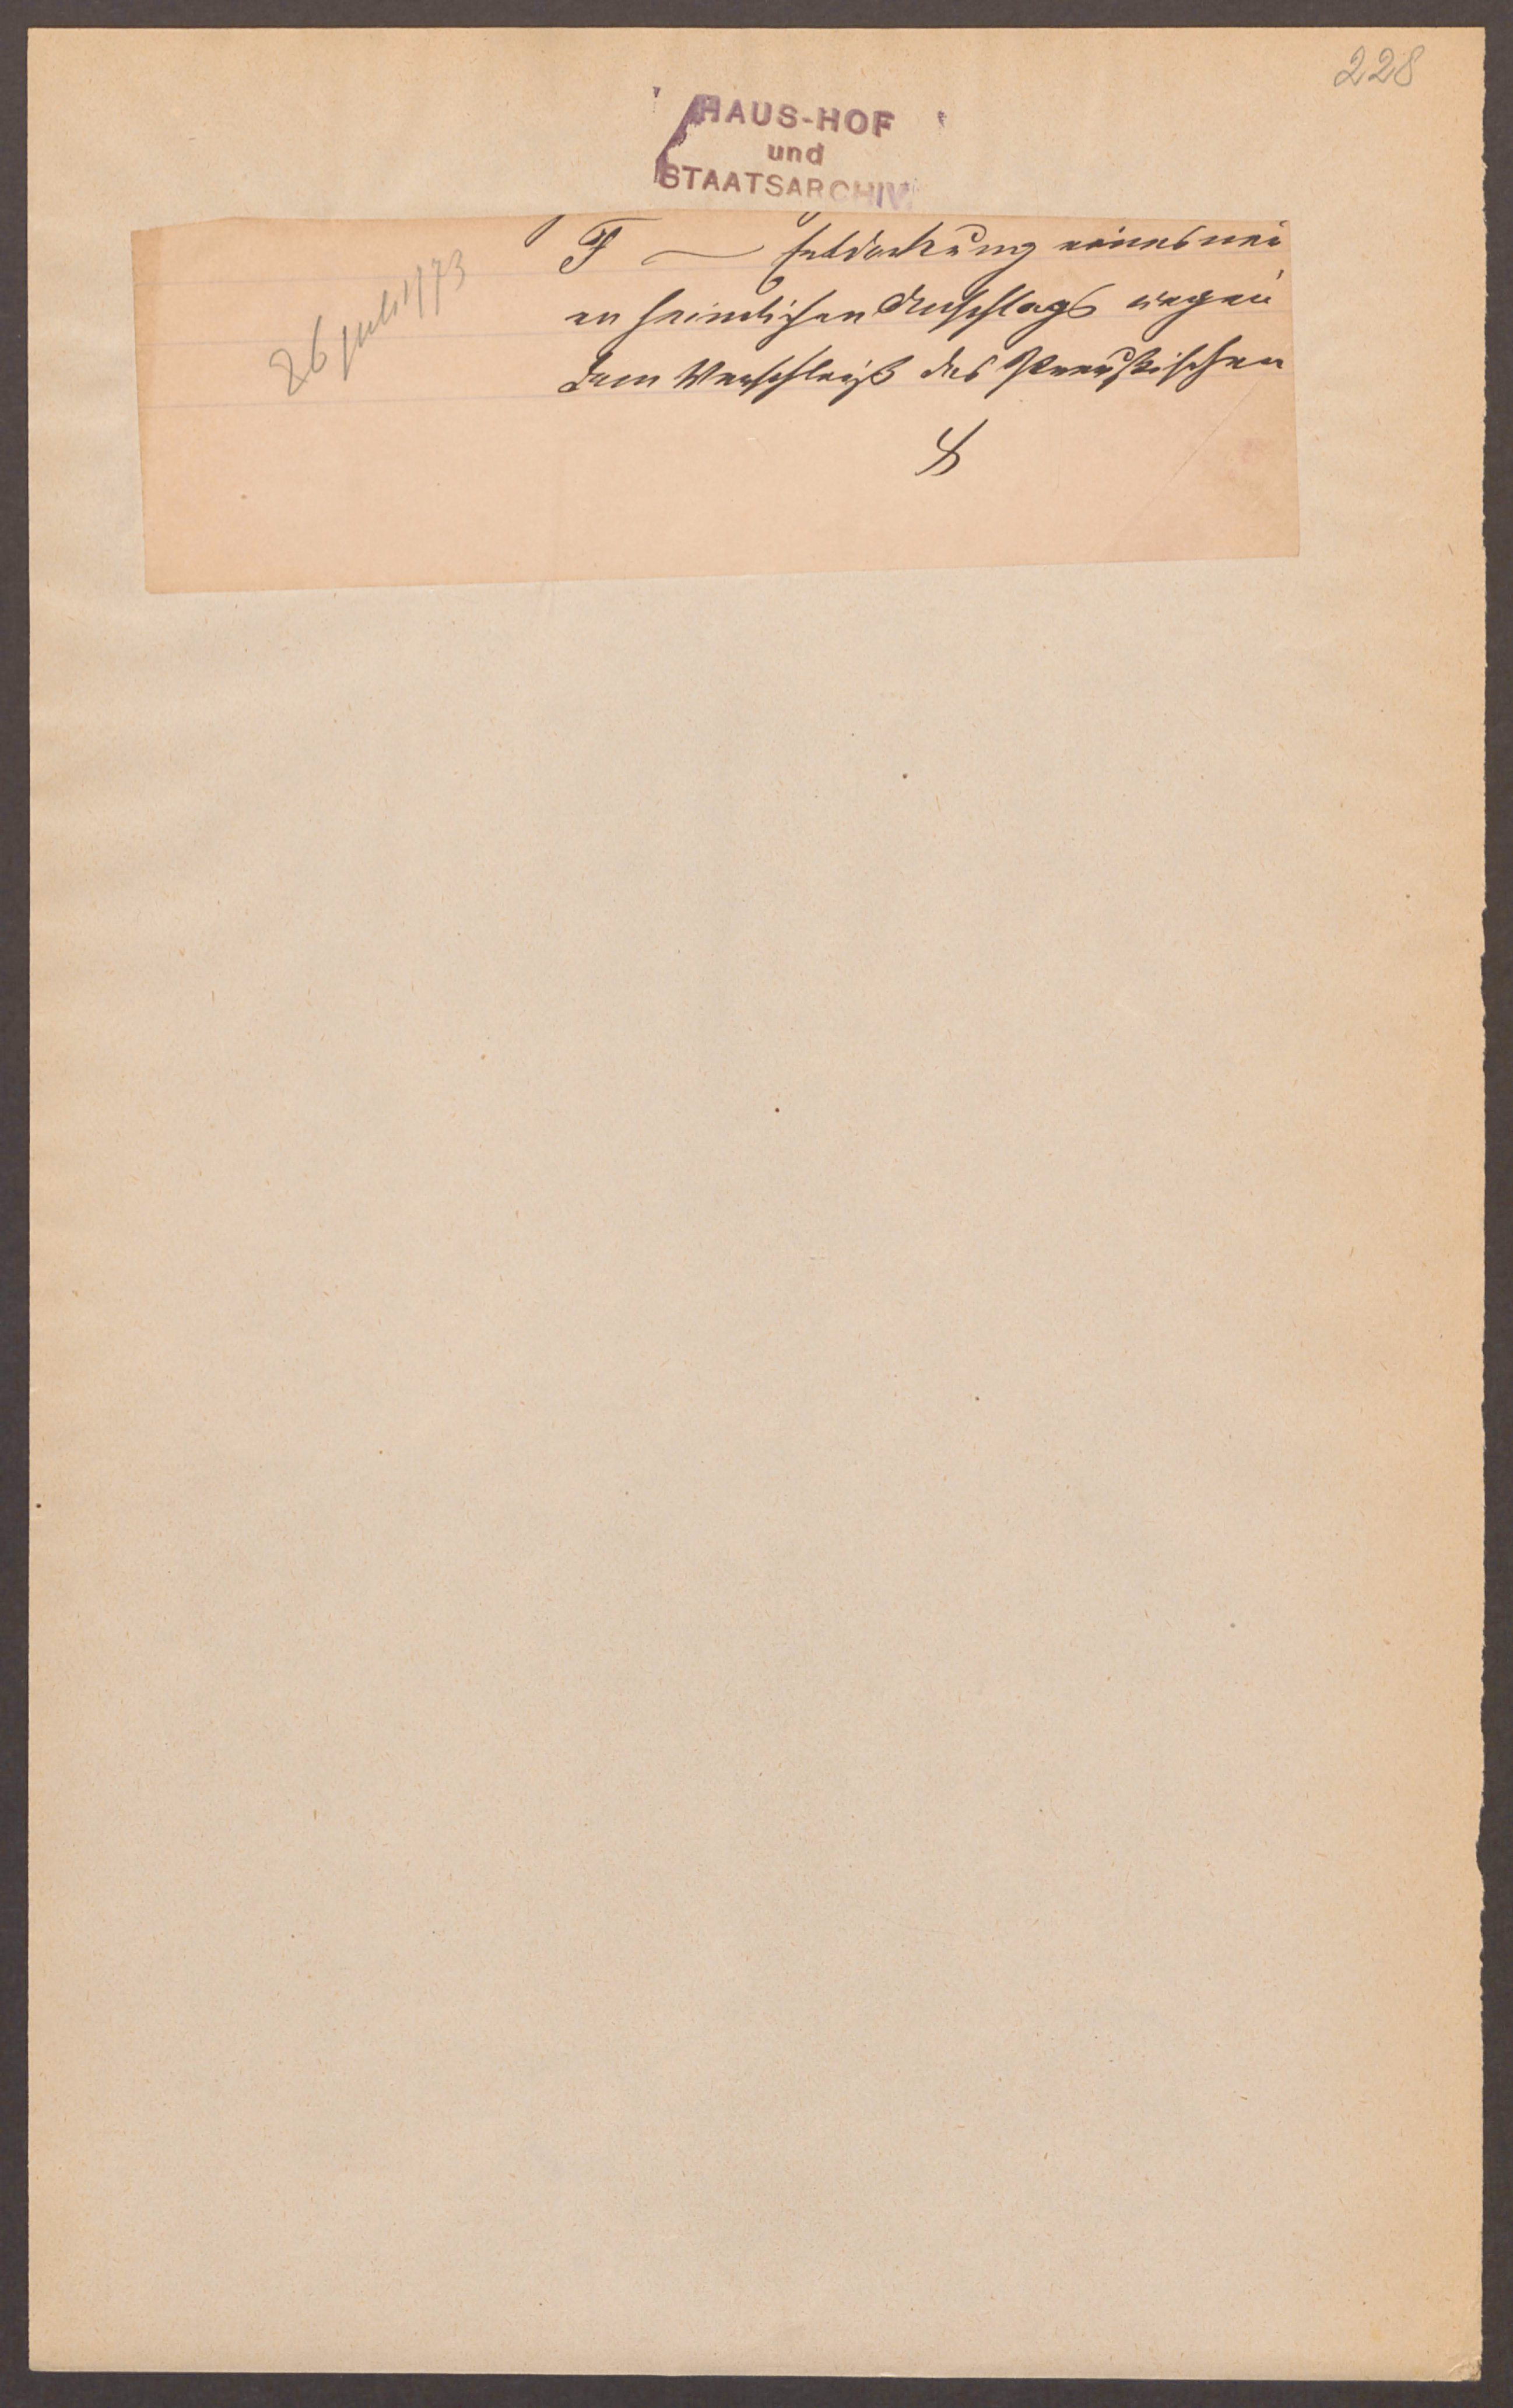 228
HAUS-HOF
und
STAATSARCHIV
26 Juli 1773
F — Entdeckung eines neu
en heimlichen Anschlags wegen
dem Verschleiß des Preußischen